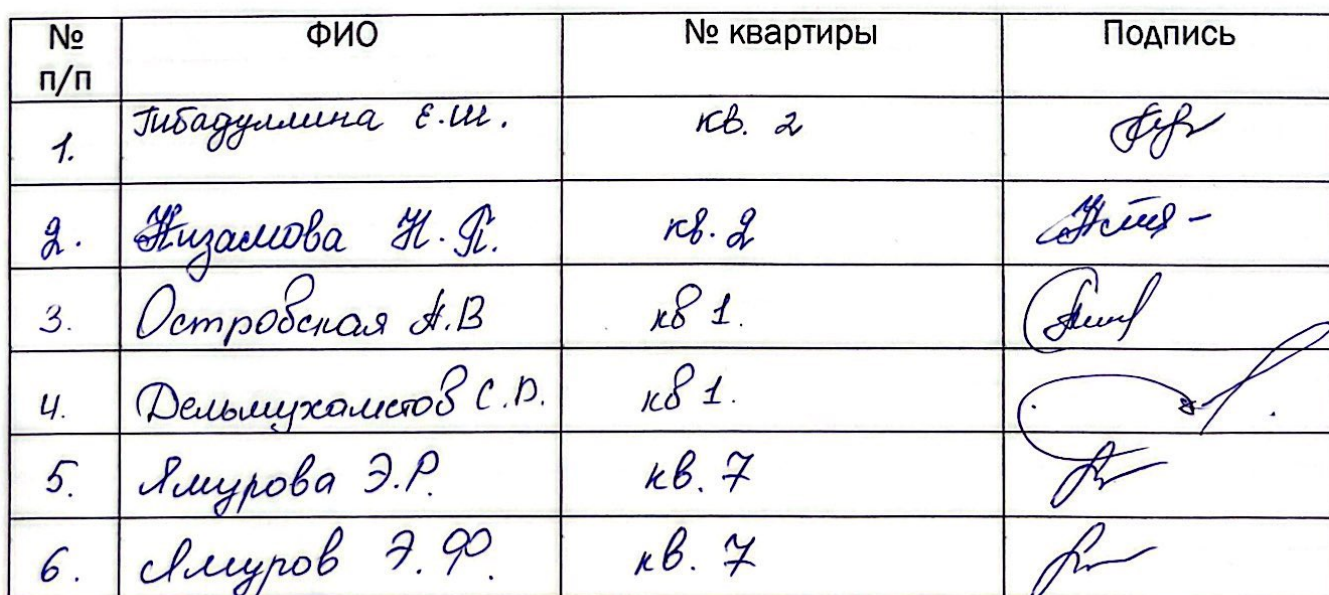 № п/п ФИО № квартиры Подпись
1. Гибадуллина Е.Ш. кв. 2
2. Низамова Н.П. кв. 2
3. Островская А.В кв 1.
4. Дельмухаметов С.Д. кв 1.
5. Ямурова Э.Р. кв. 7
6. Ямуров Э.Ф. кв. 7